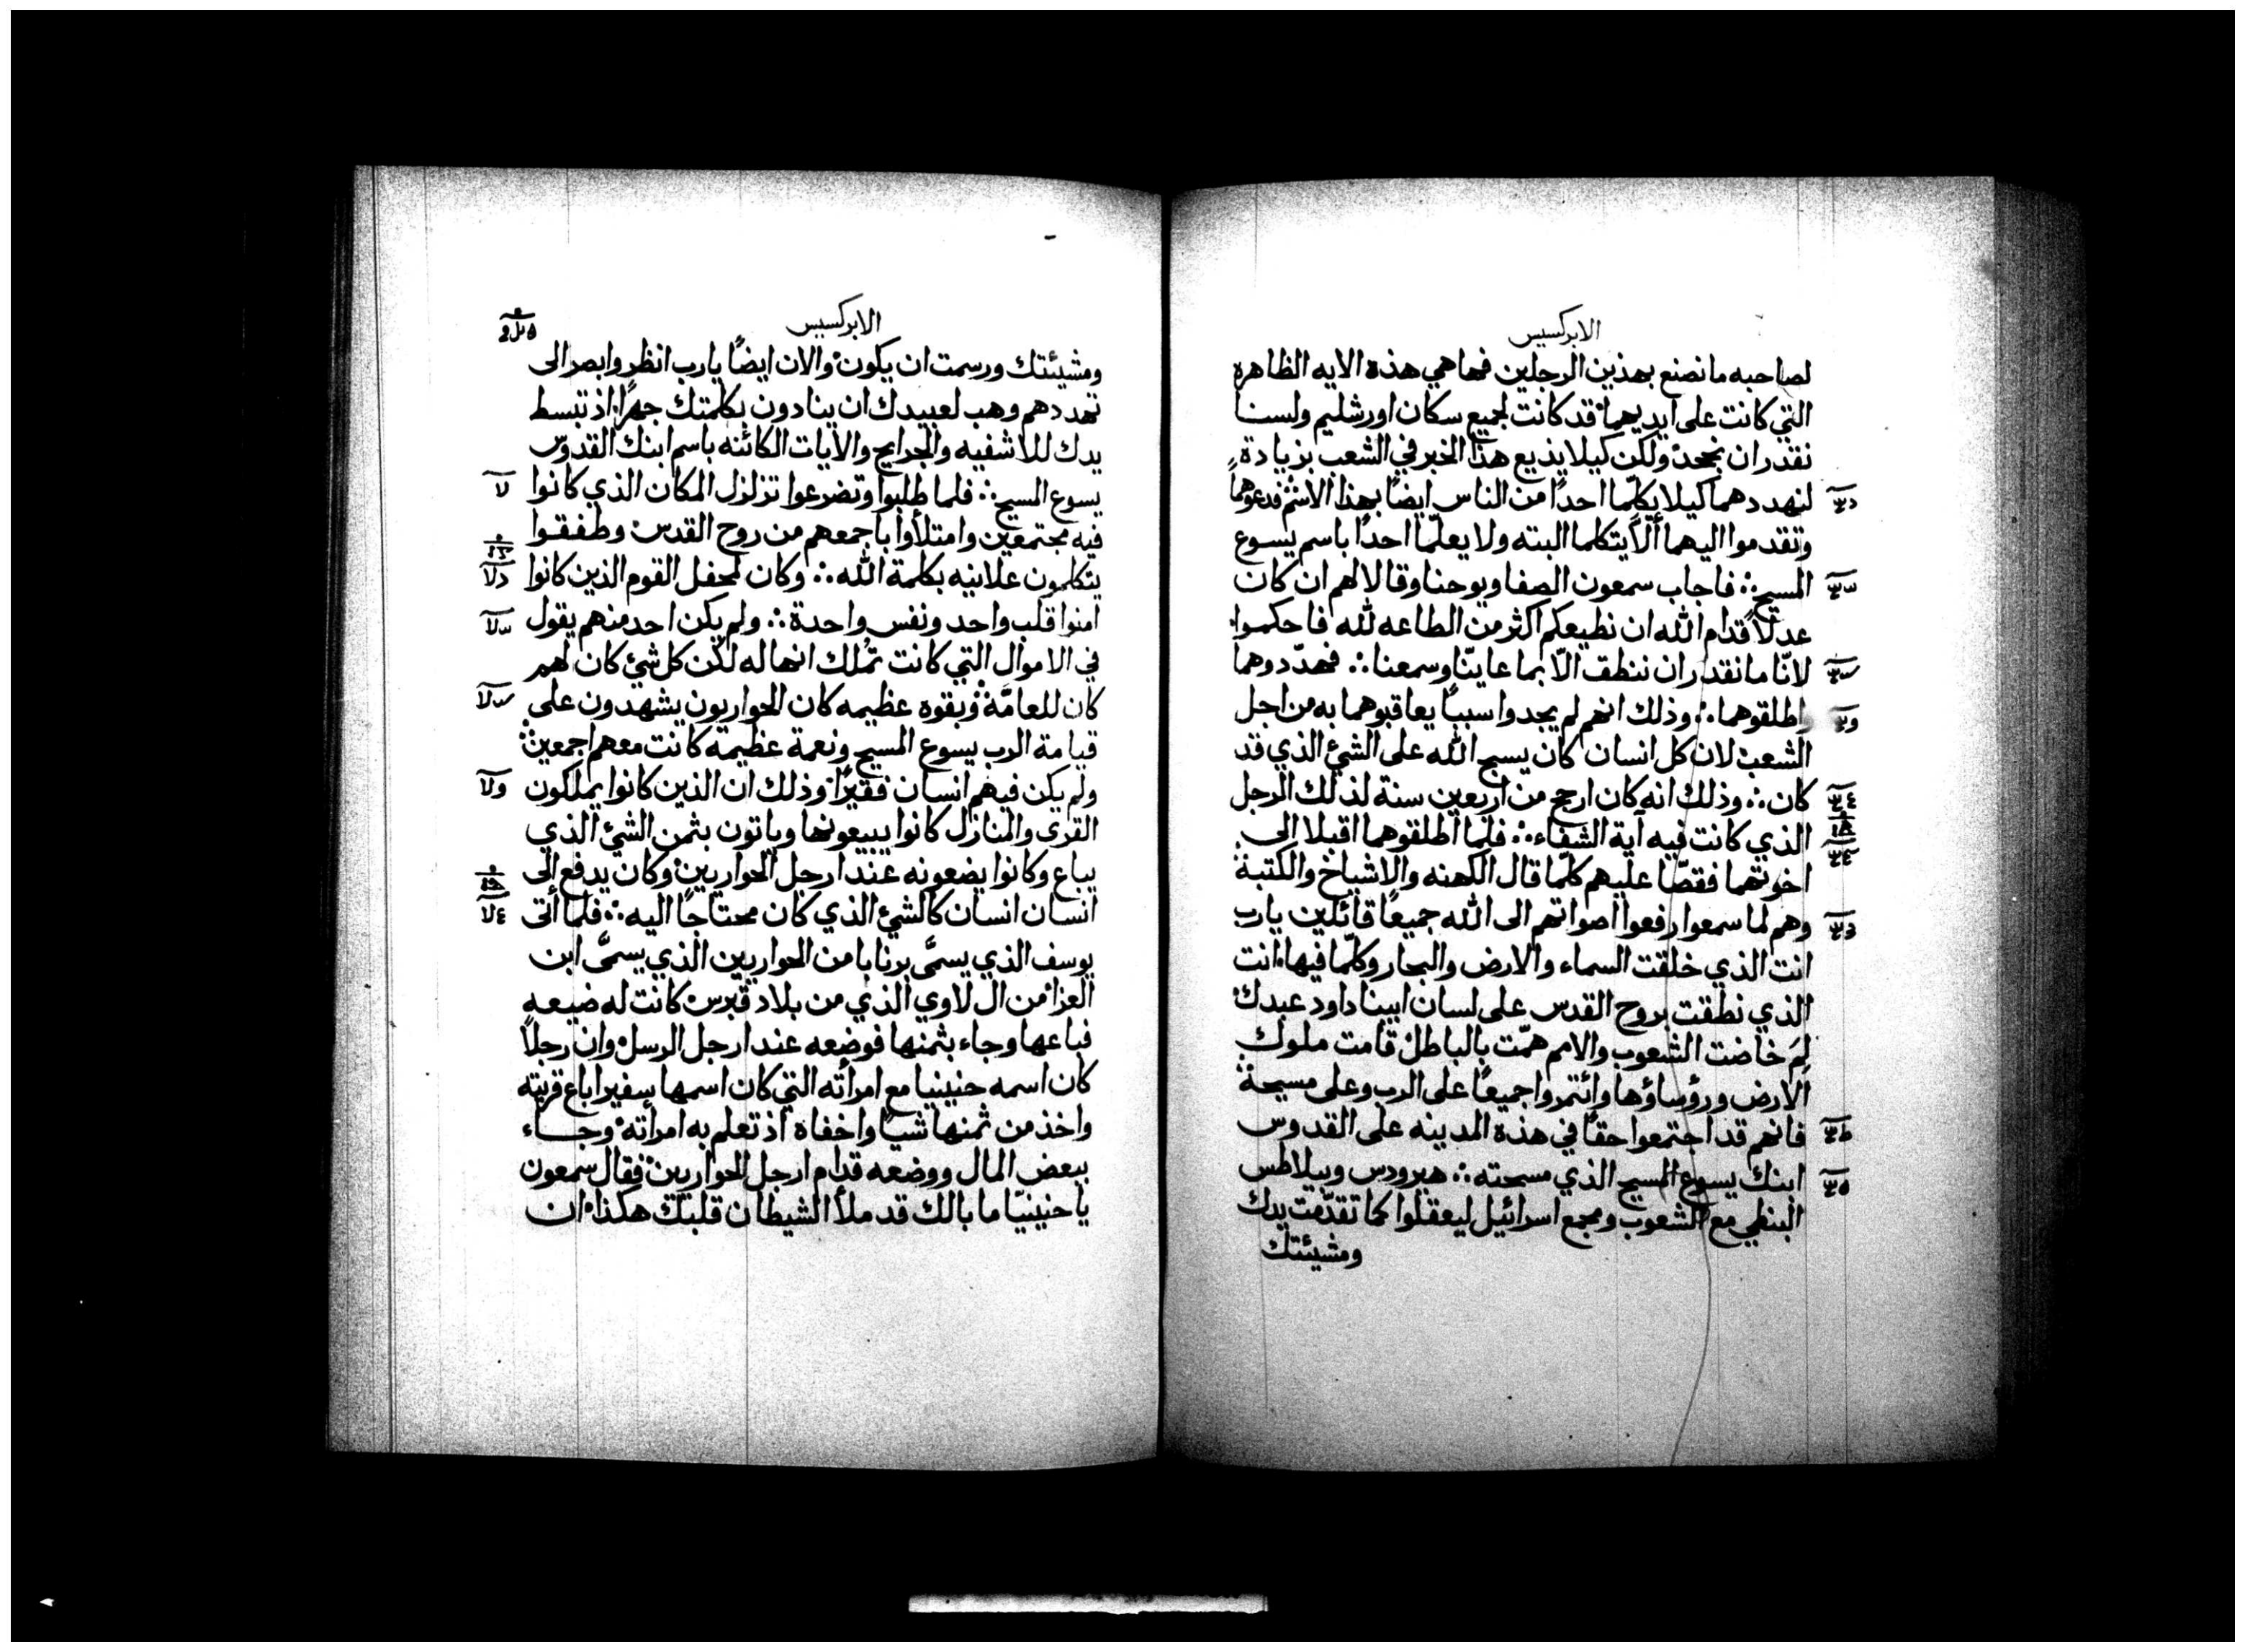 الابركسيس
لصاحبه ما نصنع بهذين الرجلين فها هي هذه الايه الظاهره
التي كانت على ايديهما قد كانت لجميع سكان اورشليم ولسنا
نقدر ان نجحد ولكن كيلا يذيع هذا الخبر في الشعب بزيادة
لنهددهما كيلا يكلّما احدًا من الناس ايضًا بهذا الاسم فدعوهما
وتقدموا اليهما ألّا يتكلما البته ولا يعلّما احدًا باسم يسوع
المسيح ∴ فاجاب سمعون الصفا ويوحنا وقالا لهم ان كان
عدلًا قدام الله ان نطيعكم اكثر من الطاعه لله فاحكموا
لانّا ما نقدر ان ننطق الّا بما عاينّا وسمعنا ∴ فهدّدوهما
واطلقوهما ∴ وذلك انهم لم يجدوا سببًا يعاقبوهما به من اجل
الشعب لان كل انسان كان يسبح الله على الشئ الذي قد
كان ∴ وذلك انه كان ارجح من اربعين سنة لذلك الرجل
الذي كانت فيه آية الشفاء ∴ فلما اطلقوهما اقبلا الى
اخوتهما فقصّا عليهم كلّما قال الكهنه والاشياخ والكتبة
وهم لما سمعوا رفعوا اصواتهم الى الله جميعًا قائلين يا رب
انت الذي خلقت السماء والارض والبحار وكلّما فيها انت
الذي نطقت بروح القدس على لسان ابينا داود عبدك
لِمَ خاضت الشعوب والامم همّت بالباطل قامت ملوك
الارض ورؤساؤها وائتمروا جميعًا على الرب وعلى مسيحة
فانهم قد اجتمعوا حقًا في هذة المدينه على القدوس
ابنك يسوع المسيح الذي مسحته ∴ هيرودس وبيلاطس
البنطي مع الشعوب ومجمع اسرائيل ليعقلوا كما تقدّمت يدك
ومشيئتك
الابركسيس
ومشيئتك ورسمت ان يكون والان ايضًا يا رب انظر وابصر الى
تهددهم وهب لعبيدك ان ينادون بكلمتك جهرًا اذ تبسط
يدك للاشفيه والجرايح والايات الكائنه باسم ابنك القدوس
يسوع المسيح ∴ فلما طلبوا وتضرعوا تزلزل المكان الذي كانوا
فيه مجتمعين وامتلأوا باجمعهم من روح القدس وطفقوا
يتكلمون علانيه بكلمة الله ∴ وكان لمحفل القوم الذين كانوا
امنوا قلب واحد ونفس واحدة ∴ ولم يكن احد منهم يقول
في الاموال التي كانت تملك انها له لكن كل شئ كان لهم
كان للعامّة وبقوه عظيمه كان الحواريون يشهدون على
قيامة الرب يسوع المسيح ونعمة عظيمة كانت معهم اجمعين
ولم يكن فيهم انسان فقيرًا وذلك ان الذين كانوا يملكون
القرى والمنازل كانوا يبيعونها وياتون بثمن الشئ الذي
يباع وكانوا يضعونه عند ارجل الحواريين وكان يدفع الى
انسان انسان كالشئ الذي كان محتاجًا اليه ∴ فلما اتى
يوسف الذي يسمَّى برنابا من الحواريين الذي يسمَّى ابن
العزا من ال لاوي الذي من بلاد قبرس كانت له ضيعه
فباعها وجاء بثمنها فوضعه عند ارجل الرسل وان رجلًا
كان اسمه حنينيا مع امرأته التي كان اسمها سفيرا باع قريته
واخذ من ثمنها شيًا واخفاه اذ تعلم به امرأته وجاء
ببعض المال ووضعه قدام ارجل الحواريين فقال سمعون
يا حنينيّا ما بالك قد ملأ الشيطان قلبك هكذا ان